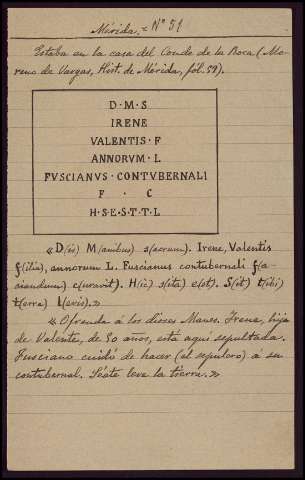 Mérida. = Nº 51
Estaba en la casa del Conde de la Roca (Mo-
reno de Vargas, Hist. de Mérida, fól. 59).
D · M · S
IRENE
VALENTIS · F
ANNORVM · L
FVSCIANVS · CONTVBERNALI
F · C
H · S · E · S · T · T · L
« D(is) M(anibus) s(acrum). Irene, Valentis
f(ilia), annorum L. Fuscianus contubernali f(a-
ciendum) c(uravit). H(ic) s(ita) e(st). S(it) t(ibi)
t(erra) l(evis). »
« Ofrenda á los dioses Manes. Irene, hija
de Valente, de 50 años, está aquí sepultada.
Fusciano cuidó de hacer (el sepulcro) á su
contubernal. Séate leve la tierra. »